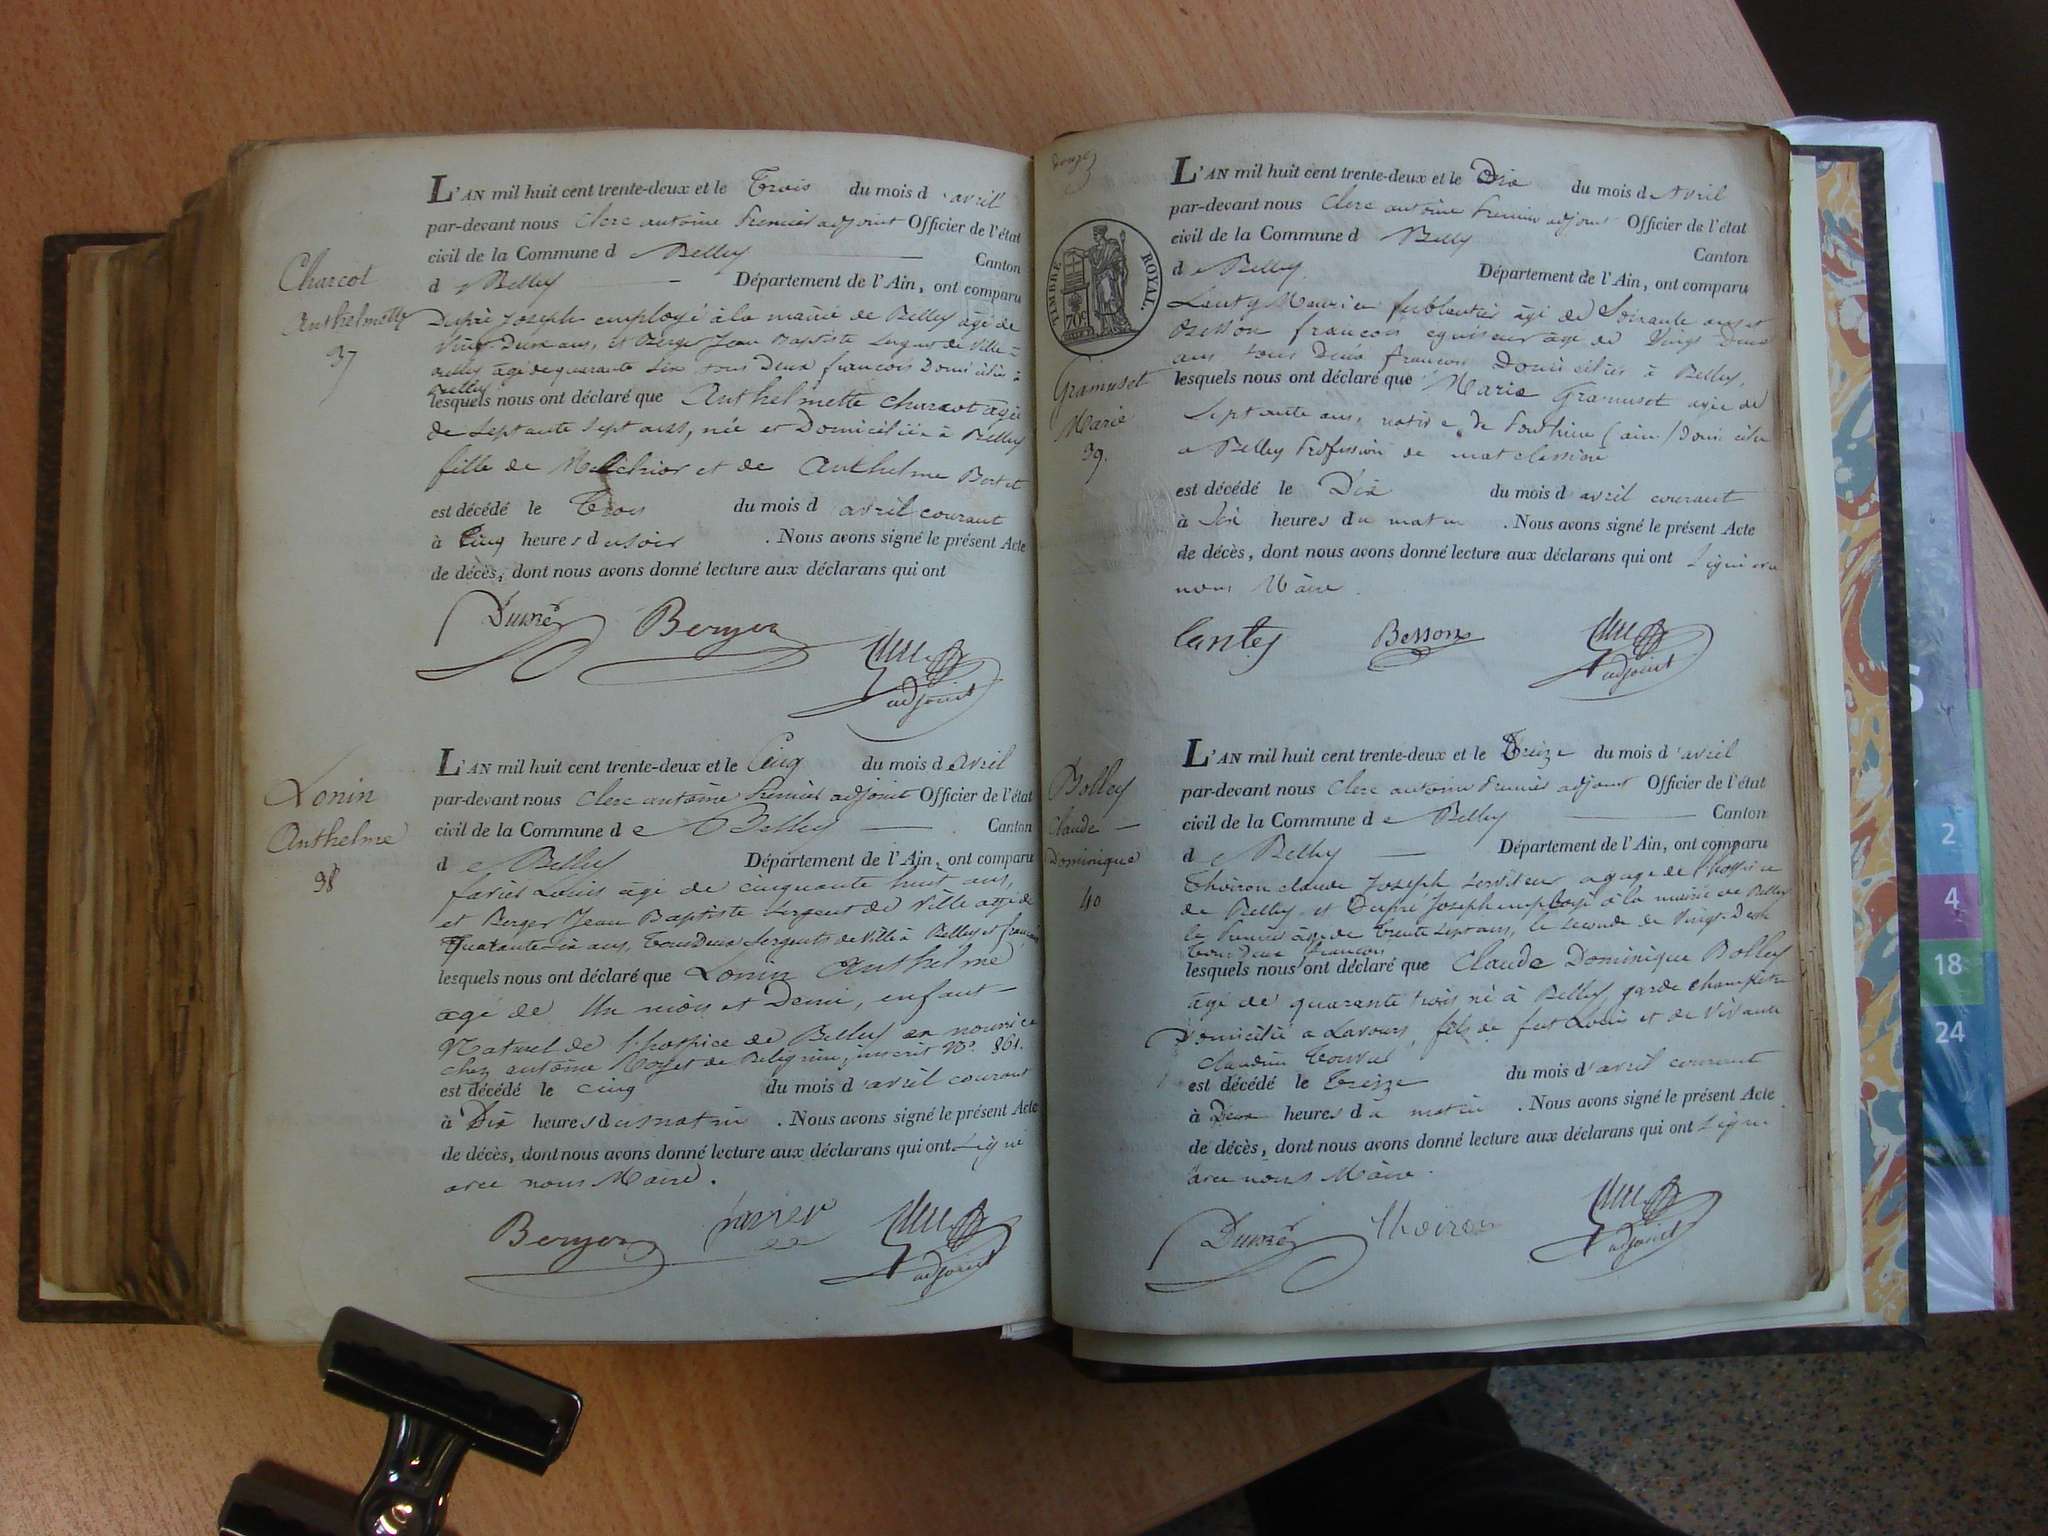 Charcot
Anthelmette
37
L'AN mil huit cent trente-deux et le Trois du mois d'avril
par-devant nous Clerc antoine Premier adjoint Officier de l'état
civil de la Commune de Belley Canton
de Belley Département de l'Ain, ont comparu
Dupré Joseph employé à la mairie de Belley âgé de
Vingt Deux ans, et Berger Jean Baptiste Sergent de Ville à
Belley âgé de quarante Six tous Deux francois Domiciliés à
Belley
lesquels nous ont déclaré que Anthelmette Charcot âgée
de Septante Sept ans, née et Domiciliée à Belley
fille de Melchior et de Anthelme Bertet
est décédé le Trois du mois d'avril courant
à Cinq heures du soir . Nous avons signé le présent Acte
de décès, dont nous avons donné lecture aux déclarans qui ont
Dupré Berger
adjoint
Lonin
Anthelme
38
L'AN mil huit cent trente-deux et le Cinq du mois d'Avril
par-devant nous Clerc antoine Premier adjoint Officier de l'état
civil de la Commune de Belley Canton
de Belley Département de l'Ain, ont comparu
Louis âgé de cinquante huit ans,
et Berger Jean Baptiste Sergent de Ville âgé de
Quarante Six ans, Tous Deux Sergents de Ville à Belley et francois
lesquels nous ont déclaré que Lonin Anthelme
âgé de Un mois et Demi, enfant
Naturel de l'hospice de Belley en nourrice
chez antoine de inscrit N° 861.
est décédé le cinq du mois d'avril courant
à Dix heures du matin . Nous avons signé le présent Acte
de décès, dont nous avons donné lecture aux déclarans qui ont Signé
avec nous Maire.
Berger
adjoint
douze
TIMBRE ROYAL.
70c
Gramuset
Marie
39.
L'AN mil huit cent trente-deux et le Dix du mois d'Avril
par-devant nous Clerc antoine Premier adjoint Officier de l'état
civil de la Commune de Belley Canton
de Belley. Département de l'Ain, ont comparu
âgé de Soixante ans et
Besson francois âgé de Vingt Deux
ans tous Deux francois Domiciliés à Belley,
lesquels nous ont déclaré que Marie Gramuset agée de
Septante ans, native de (ain) Domicilée
a Belley Profession de matelassière
est décédé le Dix du mois d'avril courant
à Six heures du matin . Nous avons signé le présent Acte
de décès, dont nous avons donné lecture aux déclarans qui ont Signé avec
nous Maire.
Lantey Besson
adjoint
Bolley
Claude
Dominique
40
L'AN mil huit cent trente-deux et le Treize du mois d'avril
par-devant nous Clerc antoine Premier adjoint Officier de l'état
civil de la Commune de Belley Canton
de Belley Département de l'Ain, ont comparu
Thoiron claude Joseph Serviteur à gage de l'hospice
de Belley et Dupré Joseph employé à la mairie de Belley
le Premier âgé de Trente Sept ans, le Seconde de Vingt Deux
Tous Deux francois
lesquels nous ont déclaré que Claude Dominique Bolley
âgé de quarante trois né à Belley garde champêtre
Domicilié a Lavours, fils de feu Louis et de Vivante
Claudine
est décédé le Treize du mois d'avril courant
à Deux heures du matin . Nous avons signé le présent Acte
de décès, dont nous avons donné lecture aux déclarans qui ont Signé
avec nous Maire.
Dupré Thoiron
adjoint
2
4
18
24